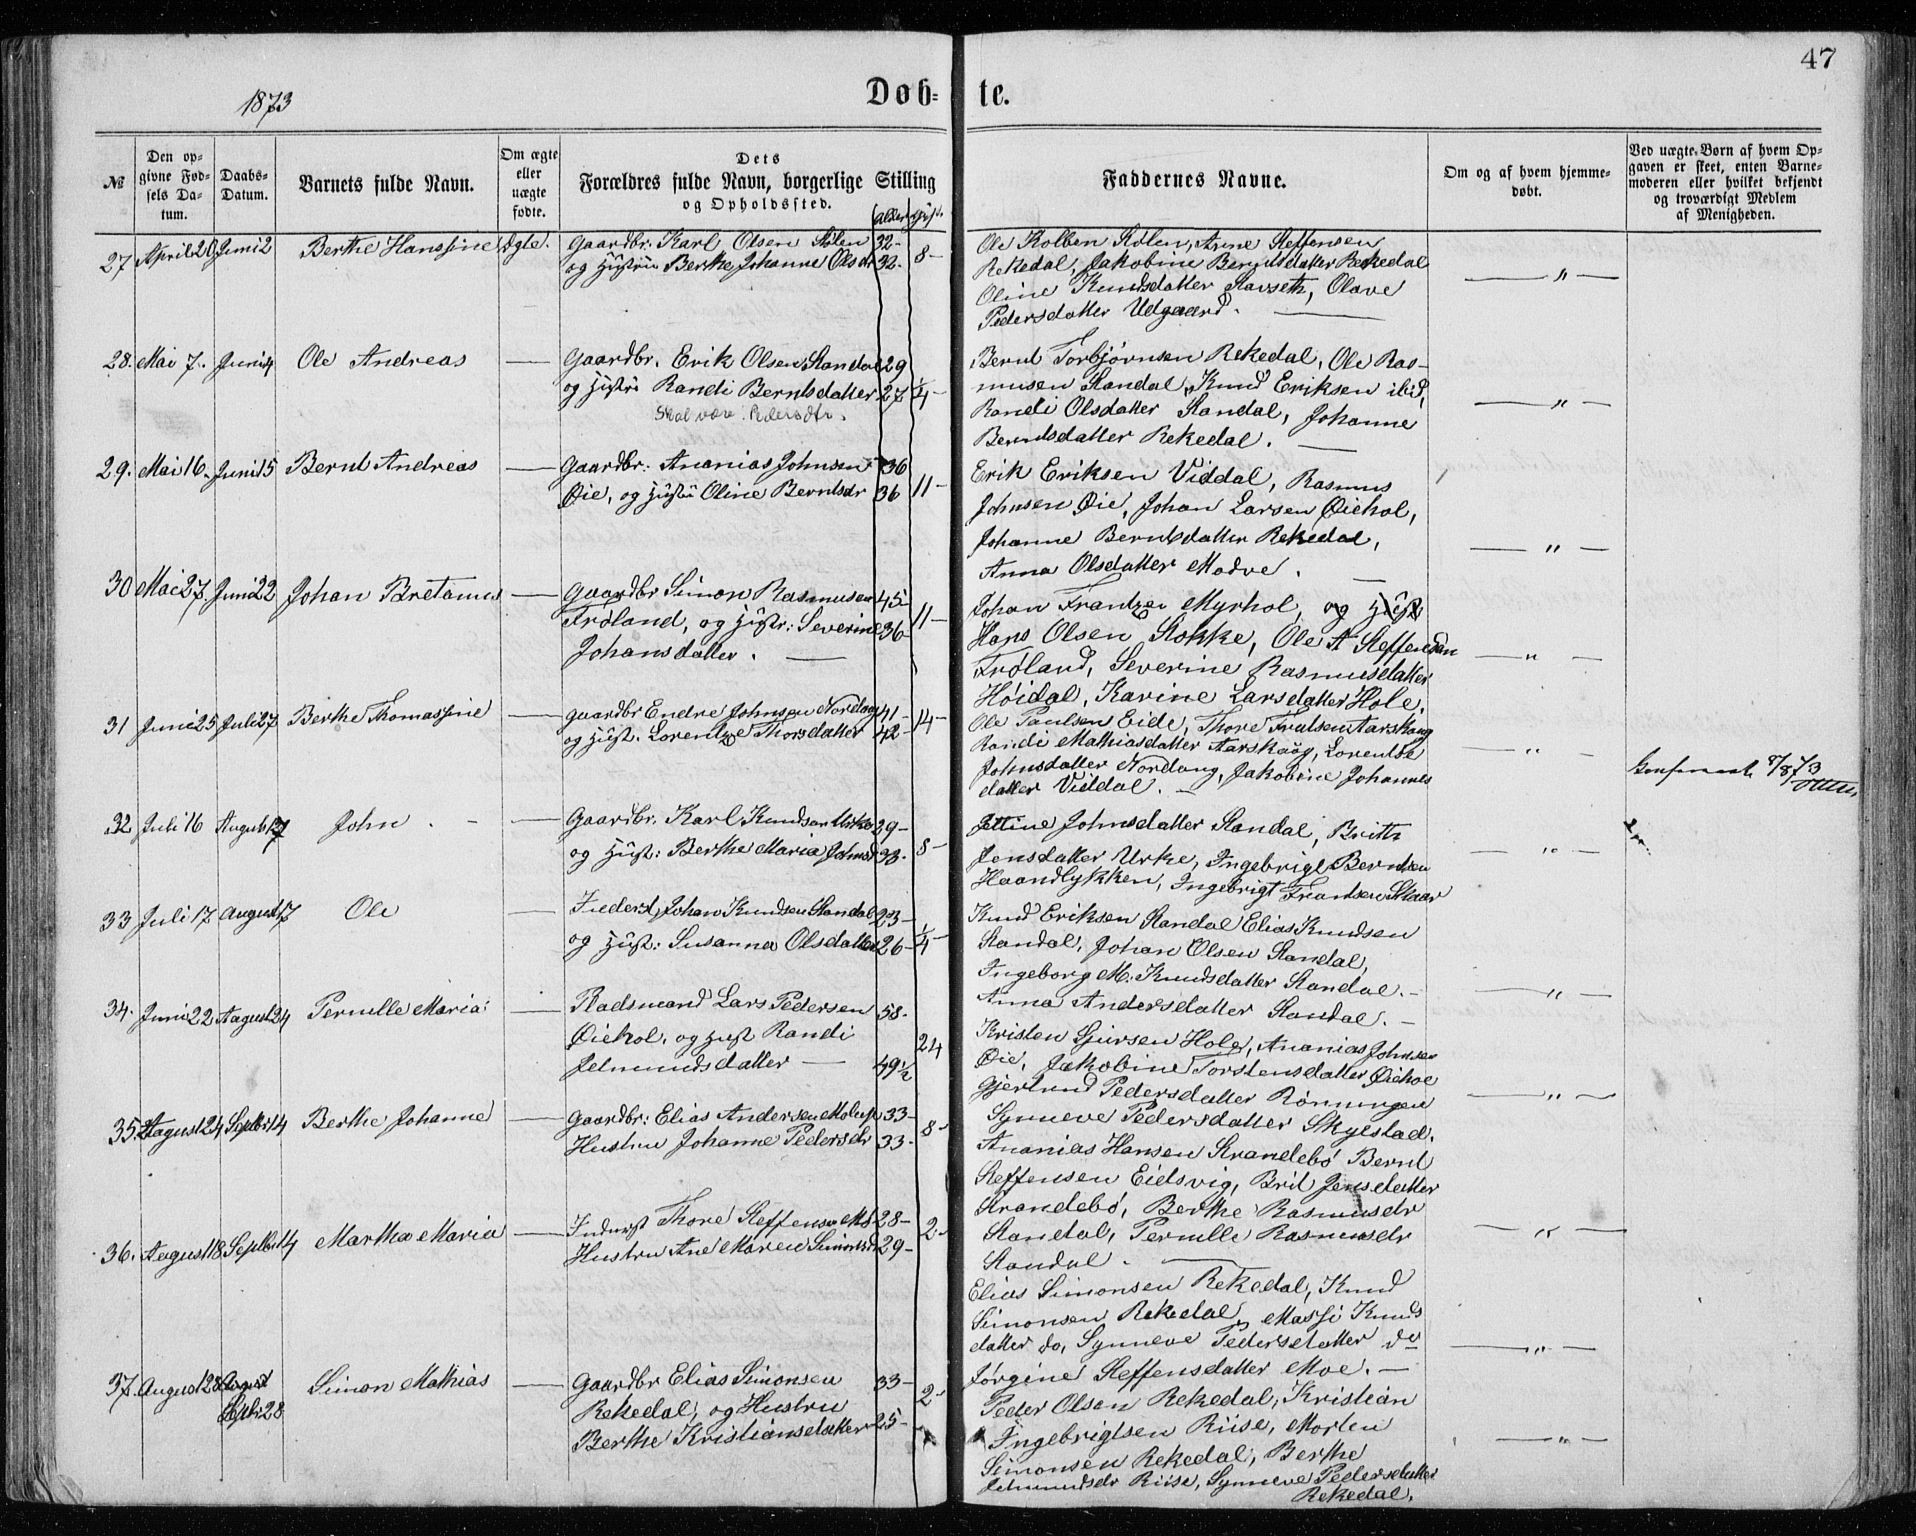 47
1873
Døb- te.
№
Den op-
givne Fød-
sels Da-
tum.
Daabs-
Datum.
Barnets fulde Navn.
Om ægte
eller
uægte
fødte.
Dets
Forældres fulde Navn, borgerlige Stilling
og Opholdssted.
Alder
Faddernes Navne.
Om og af hvem hjemme-
døbt.
Ved uægte Børn af hvem Op-
gaven er skeet, enten Barne-
moderen eller hvilket bekjendt
og troværdigt Medlem
af Menigheden.
27 April 20 Juni 2 Berthe Hansine Ægte. Gaardbr. Karl Olsen Stølen 32- 8-
og Hustru Berthe Johanne Olsdr 32.
Ole Kolben Stølen, Arne Steffensen
Rekedal, Jakobine Berndsdatter Rekedal
Oline Knudsdatter Stavseth, Olave
Pedersdatter Udgaard.
28. Mai 7. Juni 4 Ole Andreas — Gaardbr. Erik Olsen Standal 29
og Hustru Randi Berntsdatter 27 1/4-
Skal være: Pedersdtr.
Bernt Torbjørnsen Rekedal, Ole Ras-
musen Standal, Knud Eriksen ibid,
Randi Olsdatter Standal, Johanne
Berndsdatter Rekedal.
29. Mai 16. Juni 15 Bernt Andreas — Gaardbr: Ananias Johnsen 36
Øie, og Hustru Oline Berntsdr 36 11-
Erik Eriksen Viddal, Rasmus
Johnsen Øie, Johan Larsen Øiehol,
Johanne Berntsdatter Rekedal,
Anna Olsdatter Modve.
30 Mai 27. Juni 22 Johan Bretanus — Gaardbr Simon Rasmusen 45-
Frøland, og Hustr: Severine 36- 11-
Johansdatter.
Johan Frantzen Myrhol, og Hust
Hans Olsen Stokke, Ole A Steffensen
Frøland, Severine Rasmusdatter
Høidal, Karine Larsdatter Hole.
31 Juni 25 Juli 27 Berthe Thomassine — Gaardbr Endre Johnsen Nordang 41- 14-
og Hust. Lorentze Thorsdatter 42-
Ole Paulsen Eide, Thore Trulsen Aarskaag
Randi Mathiasdatter Aarskaag, Lorentse
Johnsdatter Nordang, Jakobine Johannes
datter Viddal.
8/8 73
32 Juli 16 August 17 John — Gaardbr. Karl Knudsen Urke 39-
og Hust: Berthe Maria Johnsd 33. 8-
Jettine Johnsdatter Standal, Brith
Jensdatter Urke, Ingebrigt Berntsen
Haandlykken, Ingebrigt Frantsen Skaar
33 Juli 17 August 17 Ole — Inderst, Johan Knudsen Standal 23-
og Hust: Susanna Olsdatter 26- 1/4-
Knud Eriksen Standal Elias Knudsen
Standal, Johan Olsen Standal,
Ingeborg M. Knudsdatter Standal.-
Anna Andersdatter Standal.-
34. Juni 22 August 24 Pernille Maria — Pladsmand Lars Pedersen 58.
Øiehol, og Hust Randi 24
Jelmundsdatter — 49 1/2
Kristen Sjursen Hole, Ananias Johnsen
Øie, Jakobine Torstensdatter Øiehol
Gjertrud Pedersdatter Rønningen
Synneve Pedersdatter Skylstad.
35 August 24 Septbr 14 Berthe Johanne — Gaardbr: Elias Andersen Molup 33-
Hustru Johanne Pedersdr 33- 8-
Ananias Hansen Strandebø Bernt
Steffensen Eidsvig, Brit Jensdatter
Strandebø, Berthe Rasmusdr
Standal, Pernille Rasmusdr
Standal.
36. August 18 Septbr 14 Martha Maria — Inderst Thore Steffensen 28- 2-
Hustru Ane Maren Simonsdr 29-
Elias Simonsen Rekedal, Knud
Simonsen Rekedal, Massi Knuds
datter do, Synneve Pedersdatter do
Jørgine Steffensdatter Moe.-
37. August 28 August
Septbr 28
Simon Mathias — Gaardbr Elias Simonsen 33-
Rekedal, og Hustru 2-
Berthe Kristiansdatter 25-
Peder Olsen Rekedal, Kristian
Ingebrigtsen Riise, Morten
Simonsen Rekedal, Berthe
Jelmundsdr Riise, Synneve Pedersdatter
Rekedal.